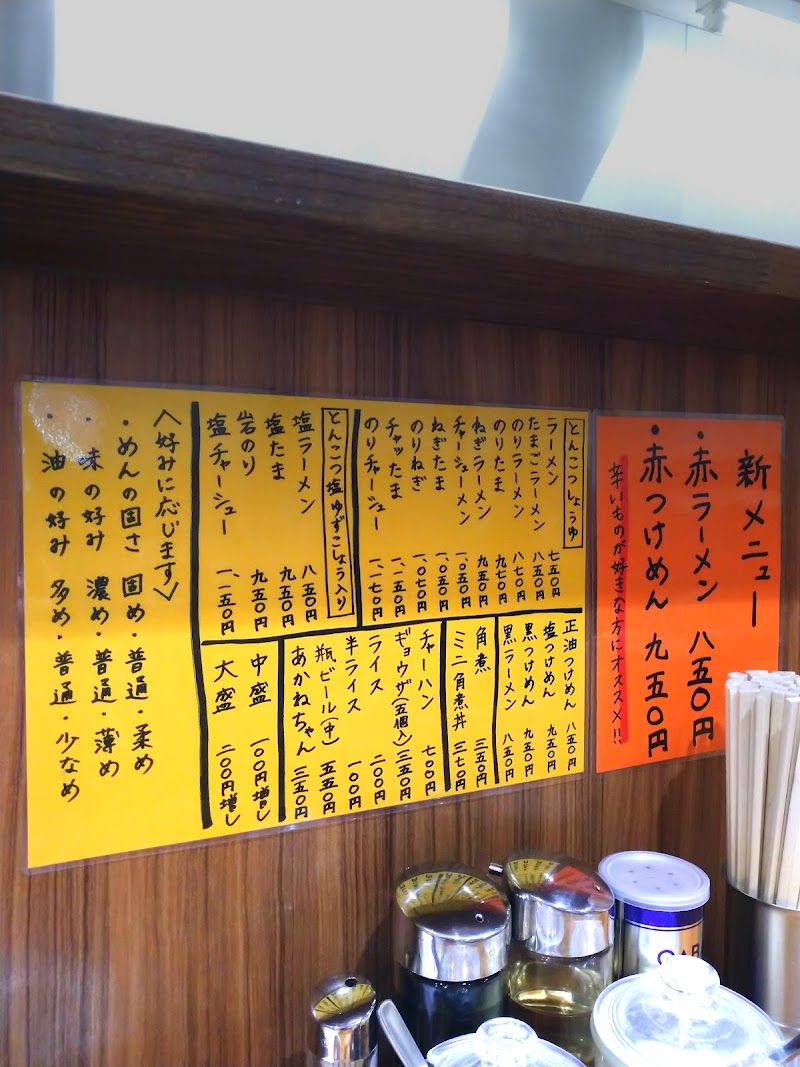 新メニュー
・赤ラーメン 八五〇円
・赤つけめん 九五〇円
辛いものが好きな方にオススメ!!
とんこつしょうゆ
ラーメン 七五〇円
たまごラーメン 八五〇円
のりラーメン 八七〇円
のりたま 九七〇円
ねぎラーメン 九五〇円
チャーシューメン 一、〇五〇円
ねぎたま 一、〇五〇円
のりねぎ 一、〇七〇円
チャッたま 一、一五〇円
のりチャーシュー 一、一七〇円
とんこつ塩ゆずこしょう入り
塩ラーメン 八五〇円
塩たま 九五〇円
岩のり 九五〇円
塩チャーシュー 一、一五〇円
正油つけめん 八五〇円
塩つけめん 九五〇円
黒つけめん 九五〇円
黒ラーメン 八五〇円
角煮 三五〇円
ミニ角煮丼 三七〇円
チャーハン 七〇〇円
ギョウザ(五個入) 三五〇円
ライス 二〇〇円
半ライス 一〇〇円
瓶ビール(中) 五五〇円
あかねちゃん 三五〇円
中盛 一〇〇円増し
大盛 二〇〇円増し
〈好みに応じます〉
・めんの固さ 固め・普通・柔め
・味の好み 濃め・普通・薄め
・油の好み 多め・普通・少なめ